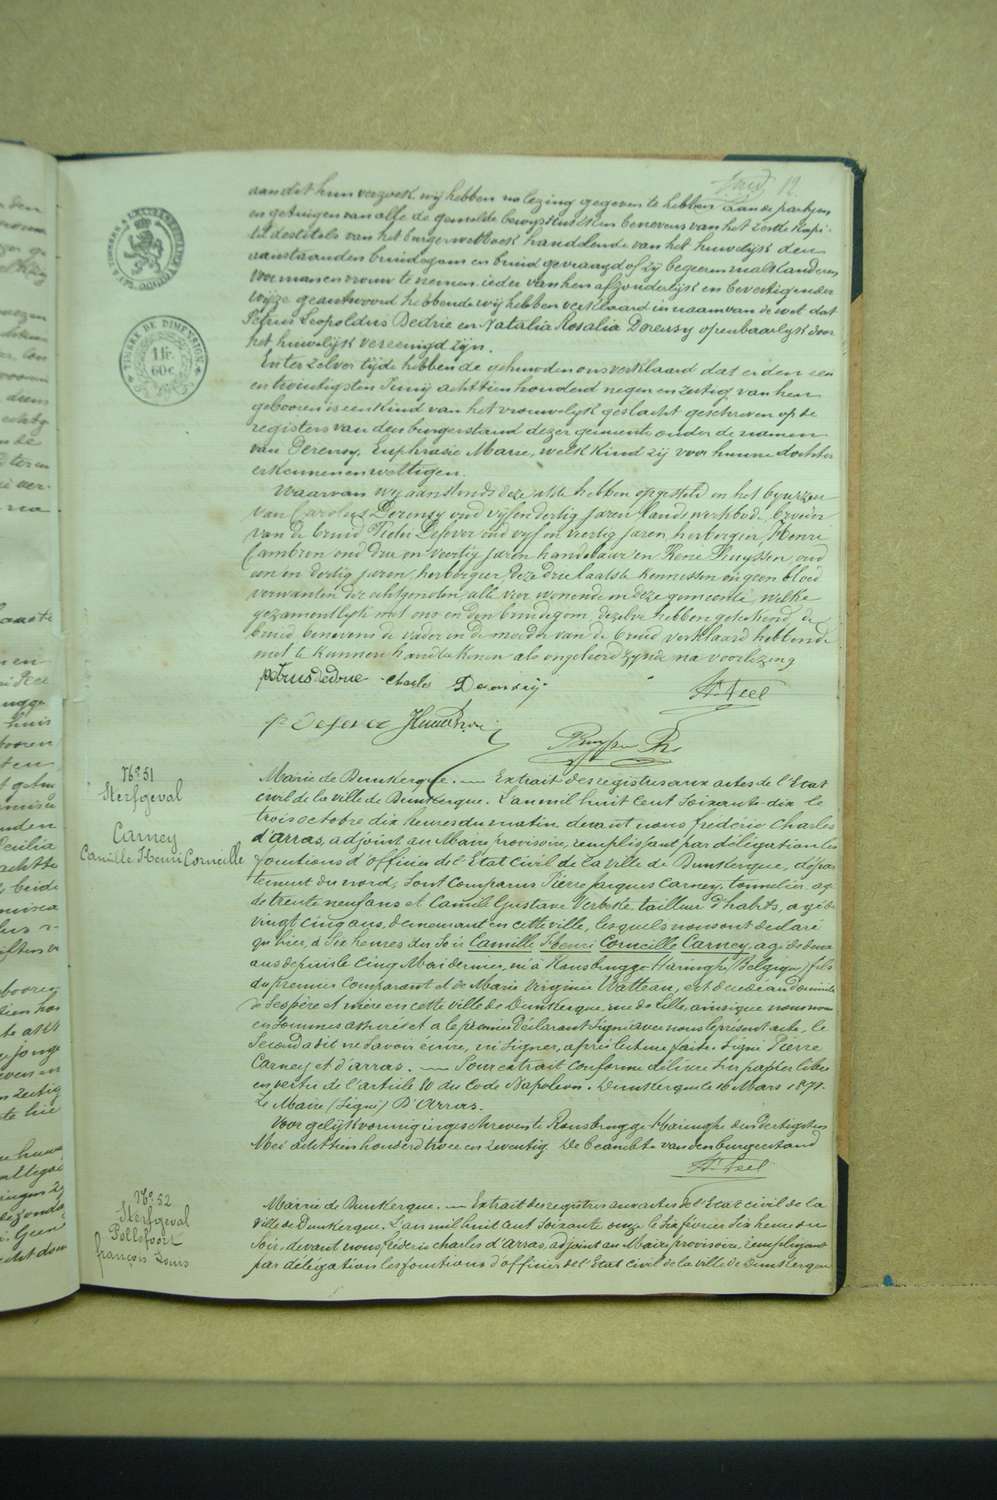 12
aan dit hun verzoek, wij hebben na lezing gegeven te hebben aan de partijen
en getuigen van alle de gemelde bewijsstukken benevens van het zesde kapi-
tel des titels van het burgerwetboek handelende van het huwelijk den
aanstaanden bruidegom en bruid gevraagd of zij begeeren malkanderen
voor man en vrouw te nemen, ieder van hen afzonderlijk en bevestigender
wijze geantwoord hebbende wij hebben verklaard in naam van de wet dat
Petrus Leopoldus Dedrie en Natalia Rosalia Derensy openbaarlijk door
het huwelijk vereenigd zijn.
En ter zelver tijde hebben de gehuwden ons verklaard dat er den een
en twintigsten Junij achttien honderd negen en zestig van hen
gebooren is een kind van het vrouwelijk geslacht geschreven op de
registers van den burgerstand dezer gemeente onder de namen
van Derensy, Euphrasie Marie, welk kind zij voor hunne dochter
erkennen en wettigen.
Waarvan wij aanstonds deze akte hebben opgesteld en het bywezen
van Carolus Derensy oud vijf en dertig jaren landswerkbode, broeder
van de bruid Pieter Defever oud vijf en veertig jaren, herbergier, Henri
Cambron oud drie en veertig jaren handelaar en René Ruyssen, oud
een en dertig jaren, herbergier, deze drie laatste kennissen en geen bloed
verwanten der echtgenoten, alle vier wonende in deze gemeente, welke
gezamentlijk met ons en den bruidegom, dezelve hebben geteekend, de
bruid benevens de vader en de moeder van de bruid verklaard hebbende
niet te kunnen handteekenen als ongeleerd zijnde na voorlezing
petrus dedrie charles Derensy
P. Defever
TIMBRE DE DIMENSION
1 fr.
60 c
No 51
Sterfgeval
Carney
Camille Henri Corneille
Mairie de Dunkerque. — Extrait des registres aux actes de l'Etat
civil de la ville de Dunkerque. L'an mil huit cent soixante-dix le
trois octobre dix heures du matin, devant nous frédéric Charles
d'arras, adjoint au Maire provisoire, remplissant par délégation les
fonctions d'officier de l'Etat Civil de la ville de Dunkerque, dépar
tement du nord, sont comparus Pierre Jacques Carney, tonnelier agé
de trente neuf ans et Camil Gustave Verbeke tailleur d'habits, agé de
vingt cinq ans, demeurant en cette ville, lesquels nous ont declaré
qu'hier, à six heures du soir Camille Henri Corneille Carney, agé de deux
ans depuis le cinq Mai dernier, né à Rousbrugge Haringhe (Belgique) fils
du premier comparant et de Marie Virginie Watteau, est decedé au domicile
de ses père et mère en cette ville de Dunkerque, rue de Lille, ainsi que nous nous
en sommes assuré et a le premier déclarant signé avec nous le présent acte, le
second a dit ne savoir écrire, ni signer, après lecture faite. Signé Pierre
Carney et d'arras. — Pour extrait conforme délivré sur papier libre
en vertu de l'article 80 du Code Napoléon. Dunkerque le 16 Mars 1871.
Le Maire (signé) D'Arras.
Voor gelijkvormig ingeschreven te Rousbrugge-Haringhe den dertigsten
Mei achttien honderd twee en zeventig. De beambte van den burgerstand
No 52
Sterfgeval
Pollefoort
françois Louis
Mairie de Dunkerque. — Extrait des registres aux actes de l'Etat civil de la
ville de Dunkerque. L'an mil huit cent soixante onze le six février six heures du
soir, devant nous, frédéric charles d'arras, adjoint au Maire provisoire, remplissant
par délégation les fonctions d'officier de l'Etat Civil de la ville de Dunkerque